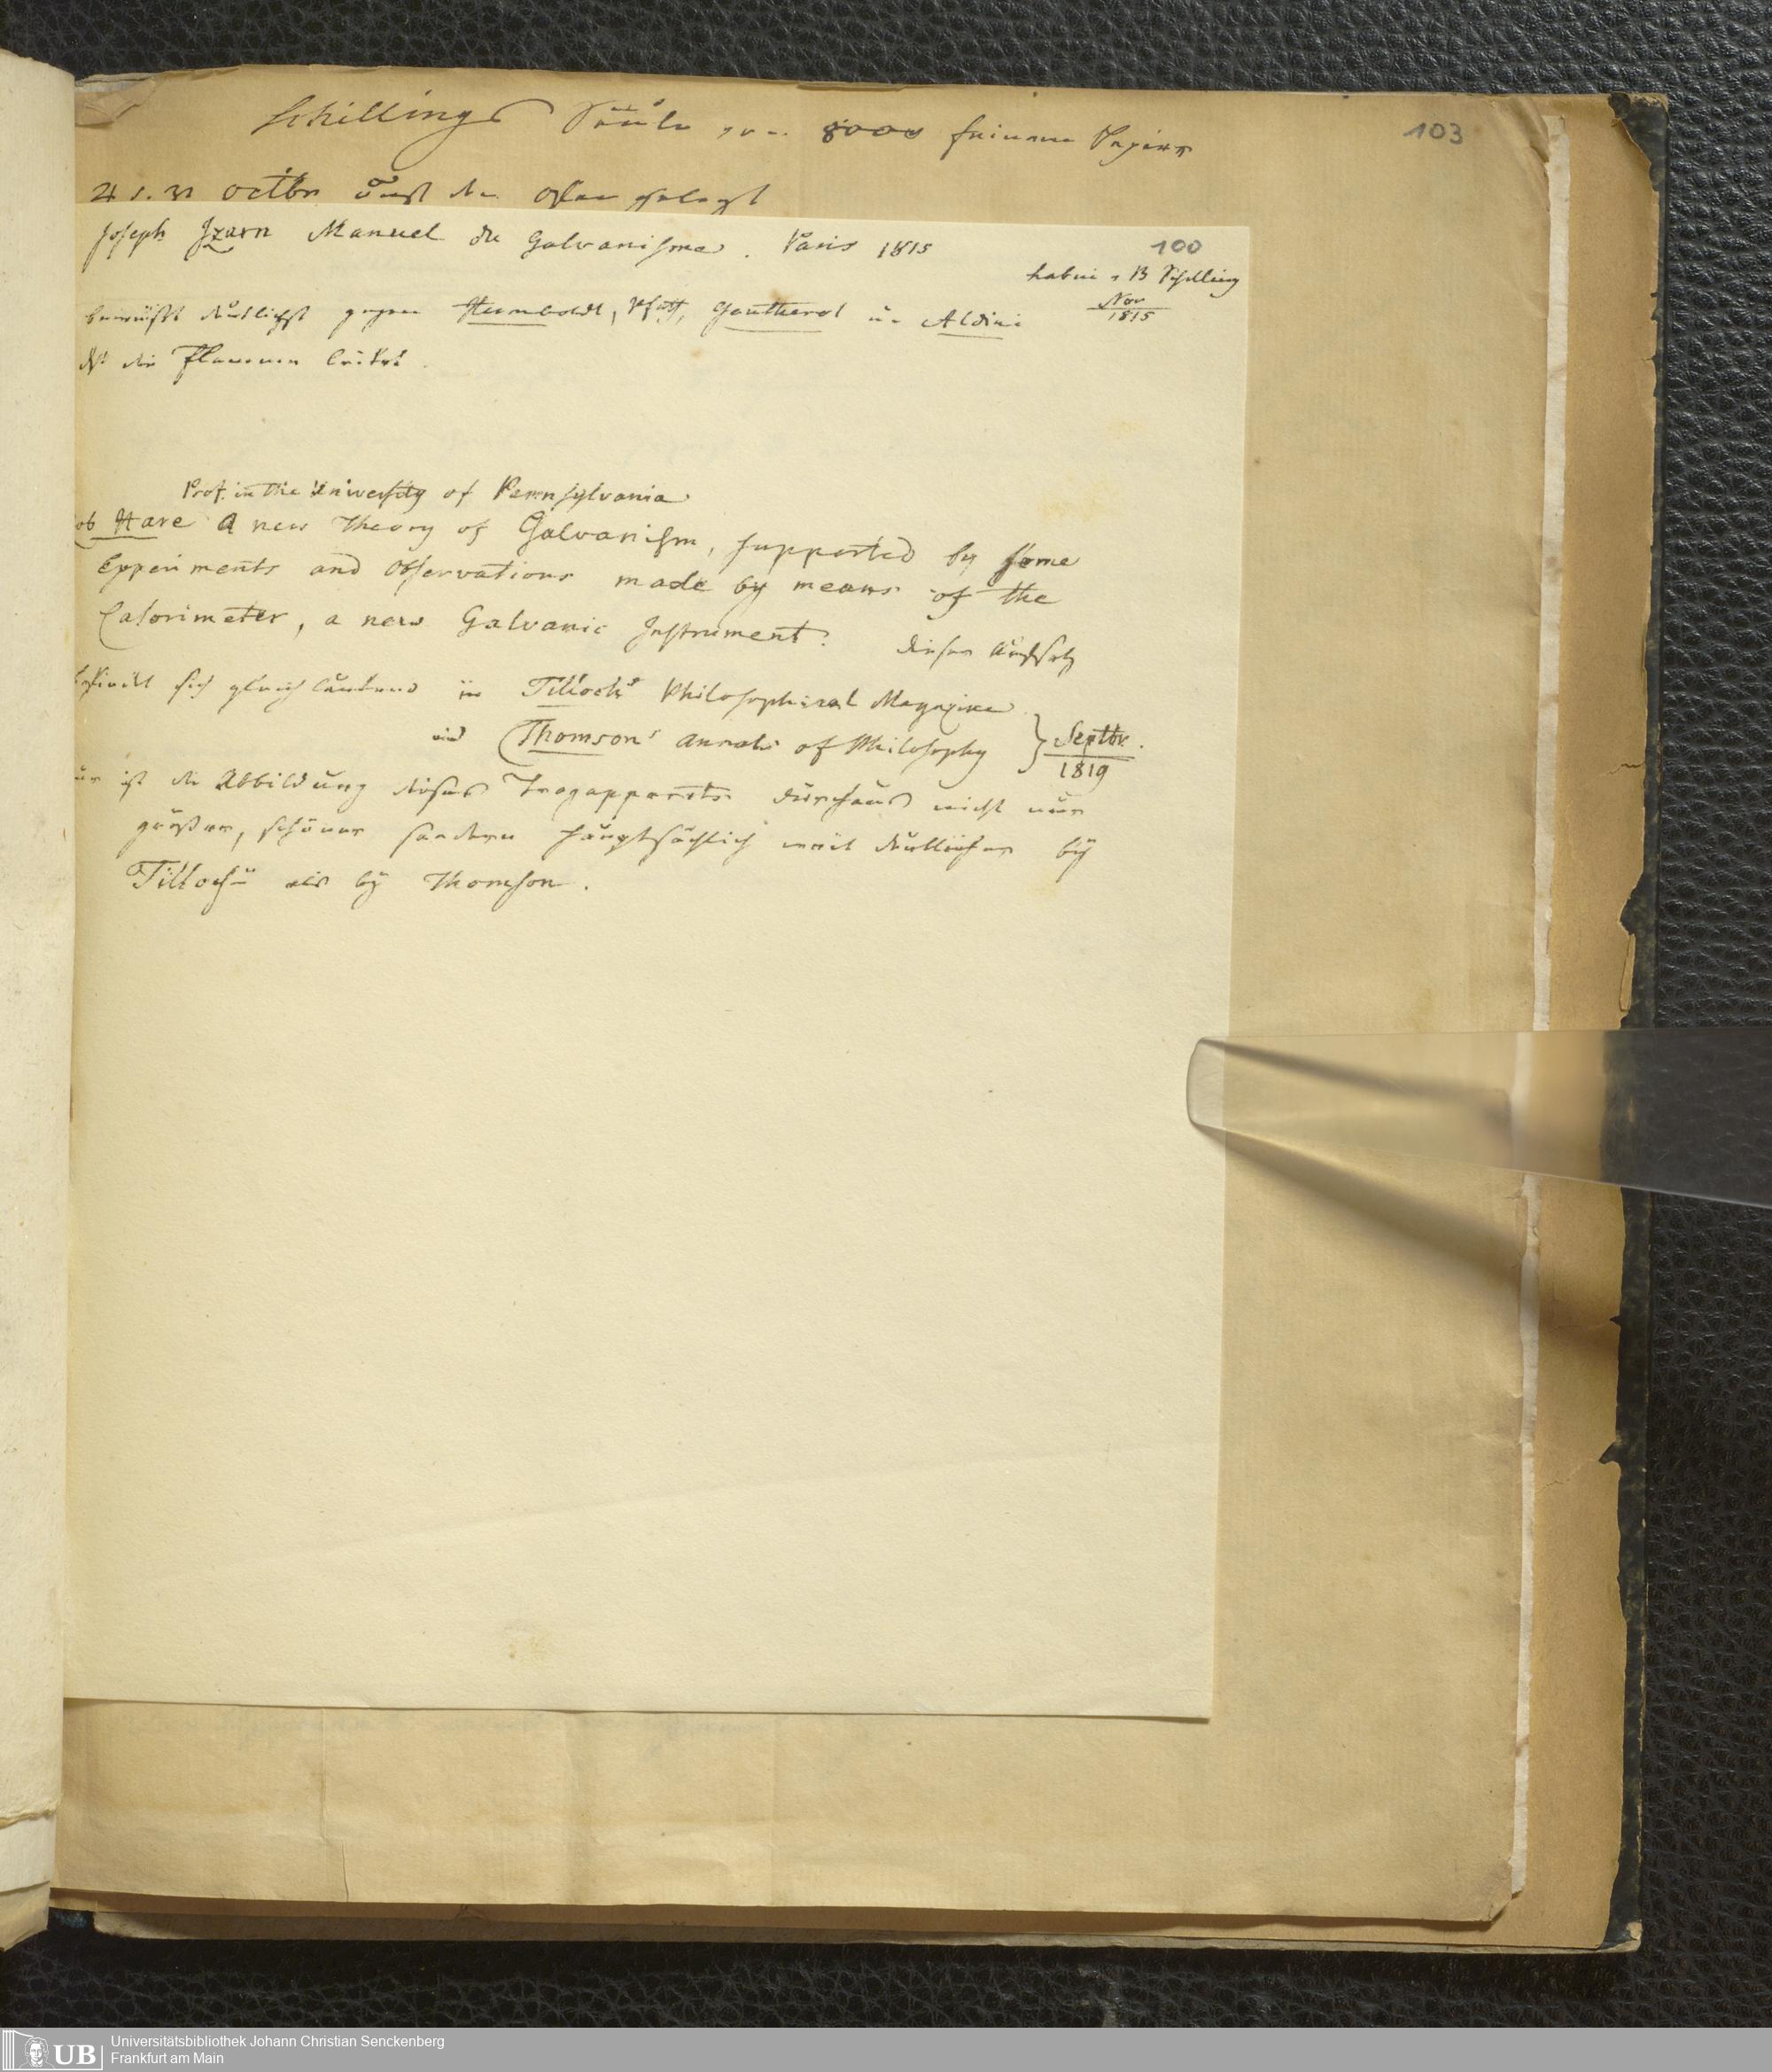 Schillings Säule von 8000 feinem Papier
103
31 Octbr auf den Ofen gelegt
Joseph Izarn Manuel du Galvanisme. Paris 1815
100
habui v B Schilling
Nov
1815
beweißt deutlichst gegen Humboldt, Pfaff, Gautherot u. Aldini
dß die Flamme leitet.
Prof. in the University of Pennsylvania
Rob Hare A new Theory of Galvanism, supported by some
Experiments and Observations made by means of the
Calorimeter, a new Galvanic Instrument. Dieser Aufsatz
befindet sich gleichlautend in Tilloch's Philosophical Magazine
und Thomson's Annals of Philosophy } Septbr.
1819
nur ist die Abbildung dieses Trogapparats durchaus nicht nur
größer, schöner sondern hauptsächlich weit deutlicher bÿ
Tilloch als bÿ Thomson.
UB
Universitätsbibliothek Johann Christian Senckenberg
Frankfurt am Main